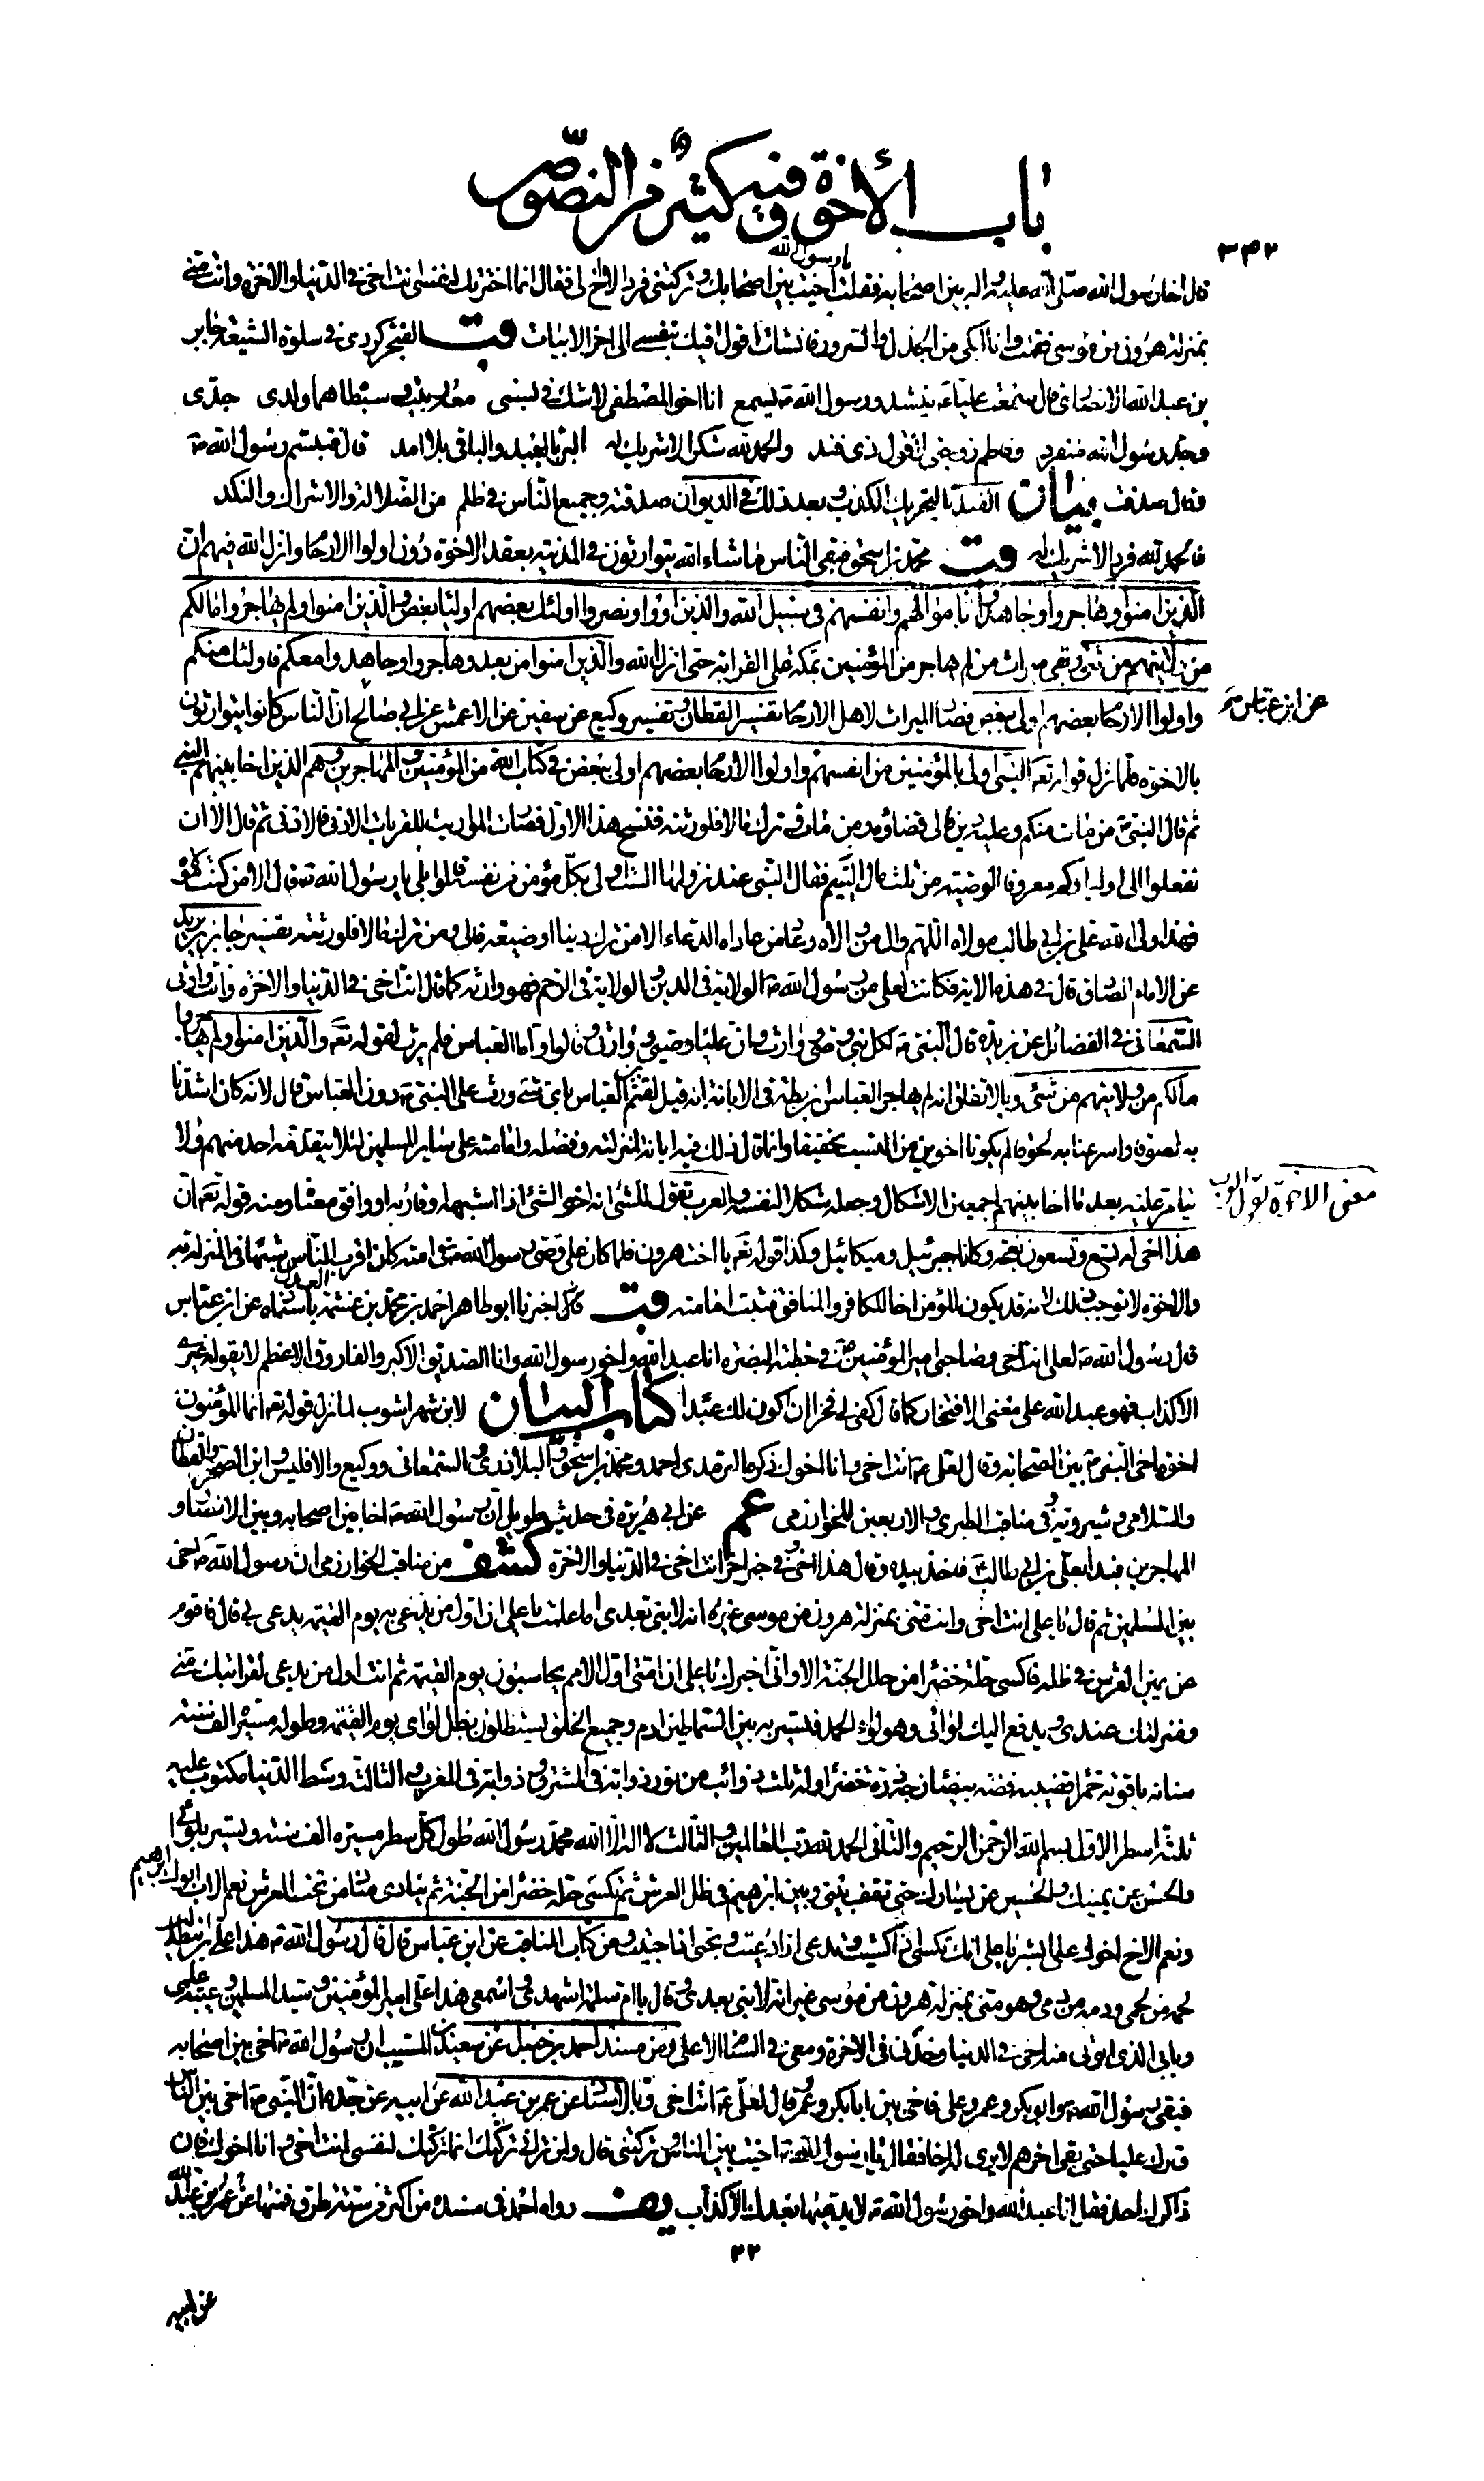 باب الأخوة وفيه كثير من النصوص
٣٣٢
يا رسول الله
قال اخا رسول الله صلى الله عليه واله بين اصحابه فقلت اخيت بين اصحابك وتركتني فردا لا اخ لي فقال انما اخترتك لنفسي انت اخي في الدنيا والاخرة وانت مني
بمنزلة هرون من موسى فقمت وانا ابكي من الجذل والسرور فانشات اقول اقيك بنفسي الى اخر الابيات قب الفنجكردي في سلوة الشيعة جابر
بن عبد الله الانصاري قال سمعت عليا ع ينشد ورسول الله ص يسمع انا اخو المصطفى لا شك في نسبي معه ربيت وسبطاه هما ولدي جدي
وجد رسول الله منفرد وفاطم زوجتي لا قول ذي فند والحمد لله شكرا لا شريك له البر بالعبد والباقي بلا امد قال فتبسم رسول الله ص
وقال صدقت بيان الفند بالتحريك الكذب وبعد ذلك في الديوان صدقته وجميع الناس في ظلم من الضلالة والاشراك والنكد
فالحمد لله فردا لا شريك له قب محمد بن اسحق فبقي الناس ما شاء الله يتوارثون في المدينة بعقد الاخوة دون اولوا الارحام وانزل الله فيهم ان
الذين امنوا وهاجروا وجاهدوا باموالهم وانفسهم في سبيل الله والذين اووا ونصروا اولئك بعضهم اولياء بعض والذين امنوا ولم يهاجروا ما لكم
من ولايتهم من شيء وبقي ميراث من لم يهاجر من المؤمنين بمكة على القرابة حتى انزل الله والذين امنوا من بعد وهاجروا وجاهدوا معكم فاولئك منكم
واولوا الارحام بعضهم اولى ببعض فصار الميراث لاهل الارحام تفسير القطان وتفسير وكيع عن سفين عن الاعمش عن ابي صالح ان الناس كانوا يتوارثون
عن ابن عباس
بالاخوة فلما نزل قوله تعالى النبي اولى بالمؤمنين من انفسهم واولوا الارحام بعضهم اولى ببعض في كتاب الله من المؤمنين والمهاجرين وهم الذين اخا بينهم النبي
ثم قال النبي ص من مات منكم وعليه دين فالى قضاؤه ومن مات وترك مالا فلورثته فنسخ هذا الاول فصارت المواريث للقرابات الادنى فالادنى ثم قال الا ان
تفعلوا الى اوليائكم معروفا الوصية من ثلث مال اليتيم فقال النبي عند نزولها الست اولى بكل مؤمن من نفسه قالوا بلى يا رسول الله ص قال الا من كنت مولاه
فهذا ولي الله علي بن ابي طالب مولاه اللهم وال من والاه وعاد من عاداه الدعاء الا من ترك دينا او ضيعة فالي ومن ترك مالا فلورثته تفسير جابر بن يزيد
عن الامام الصادق قال في هذه الاية فكانت لعلي من رسول الله ص الولاية في الدين والولاية في الرحم فهو وارثه كما قال انت اخي في الدنيا والاخرة وانت وارثي
السمعاني في الفضائل عن بريدة قال النبي ص لكل نبي وصي ووارث وان عليا وصيي ووارثي وقالوا واما العباس فلم يرث لقوله تع والذين امنوا ولم يهاجروا
ما لكم من ولايتهم من شئ وبالاتفاق انه لم يهاجر العباس ابن بطة في الابانة انه قيل لقثم بن العباس باي شئ ورث علي النبي ص دون العباس قال لانه كان اشدنا
به لصوقا واسرعنا به لحوقا لم يكونا اخوين من النسب تحقيقا وانما قال ذلك فيه ابانة لمنزلته وفضله وامامته على ساير المسلمين لئلا يتقدمه احد منهم ولا
يتامر عليه بعد ما اخا بينهم اجمعين الاشكال وجعله شكلا لنفسه والعرب تقول للشئ انه اخو الشئ اذا اشبهه او قاربه او وافق معناه ومنه قوله تع ان
معنى الاخوة
هذا اخي له تسع وتسعون نعجة وكانا جبرئيل وميكائيل وكذا قوله تع يا اخت هرون فلما كان علي وصي رسول الله في امته كان اقرب الناس شبها في المنزلة به
والاخوة لا توجب ذلك لانه قد يكون للمؤمن اخا للكافر والمنافق فثبت امامته قب اخبرنا ابو طاهر احمد بن محمد بن باسناده عن ابن عباس
قال رسول الله ص لعلي انت اخي وصاحبي امير المؤمنين ع في خطبة البصرة انا عبد الله واخو رسول الله وانا الصديق الاكبر والفاروق الاعظم لا يقوله غيري
الا كذاب فهو عبد الله على معنى الافتخار كما قال كفى لي فخرا ان اكون لك عبدا كتاب البيان لابن شهراشوب لما نزل قوله تع انما المؤمنون
اخوة اخى النبي ص بين اصحابه وقال لعلي ع انت اخي وانا اخوك ذكره الترمذي احمد ومحمد بن اسحق والبلاذري والسمعاني ووكيع والاقليسي وابن الصخر والقطان
والسلامي وشيرويه في مناقب الطبري والاربعين للخوارزمي عم عن ابي هريرة في حديث طويل ان رسول الله ص اخا بين اصحابه وبين الانصار و
المهاجرين فبدا بعلي بن ابي طالب فاخذ بيده وقال هذا اخي وفي خبر اخر انت اخي في الدنيا والاخرة كشف من مناقب الخوارزمي ان رسول الله ص اخى
بين المسلمين ثم قال يا علي انت اخي وانت مني بمنزلة هرون من موسى غير انه لا نبي بعدي اما علمت يا علي ان اول من يدعى به يوم القيمة يدعى بي قال فاقوم
عن يمين العرش في ظله فاكسى حلة خضرا من حلل الجنة الا واني اخبرك يا علي ان امتي اول الامم يحاسبون يوم القيمة ثم انت اول من يدعى لقرابتك مني
ومنزلتك عندي ويدفع اليك لوائي وهو لواء الحمد فتسير به بين السماطين ادم وجميع الخلق يستظلون بظل لوائي يوم القيمة وطوله مسيرة الف سنة
سنانه ياقوتة حمرا قضيبه فضة بيضا زجه درة خضرا وله ثلث ذوائب من نور ذوابة في المشرق وذوابة في المغرب والثالثة وسط الدنيا مكتوب عليه
ثلثة اسطر الاول بسم الله الرحمن الرحيم والثاني الحمد لله رب العالمين والثالث لا اله الا الله محمد رسول الله طول كل سطر مسيرة الف سنة وتسير بلوائي
والحسن عن يمينك والحسين عن يسارك حتى تقف بيني وبين ابرهيم في ظل العرش ثم تكسى حلة خضرا من الجنة ثم ينادي مناد من تحت العرش نعم الاب ابوك ابرهيم
ونعم الاخ اخوك علي ابشر يا علي انك تكسى اذا كسيت وتدعى اذا دعيت وتحيى اذا حييت ومن كتاب المناقب عن ابن عباس قال قال رسول الله ص هذا علي بن ابي طالب
لحمه من لحمي ودمه من دمي وهو مني بمنزلة هرون من موسى غير انه لا نبي بعدي وقال يا ام سلمة اشهدي واسمعي هذا علي امير المؤمنين وسيد المسلمين وعيبة علمي
وبابي الذي اوتى منه اخي في الدنيا وخدني في الاخرة ومعي في السنام الاعلى ومن مسند احمد بن حنبل عن سعيد بن المسيب ان رسول الله ص اخى بين اصحابه
فبقي رسول الله ص وابو بكر وعمر وعلي فاخى بين ابا بكر وعمر وقال لعلي ع انت اخي وبالاسناد عن عمر بن عبد الله عن ابيه عن جده ان النبي ص اخى بين الناس
وترك عليا حتى بقي اخرهم لا يرى له اخا فقال يا رسول الله ص اخيت بين الناس وتركتني قال ولمن تراني تركتك انما تركتك لنفسي انت اخي وانا اخوك فان
ذاكرك احد فقل انا عبد الله واخو رسول الله ص لا يدعيها بعدك الا كذاب يف رواه احمد في مسنده من اكثر من ستة طرق فمنها عن عمر بن عبد الله
٣٣
عن ابيه